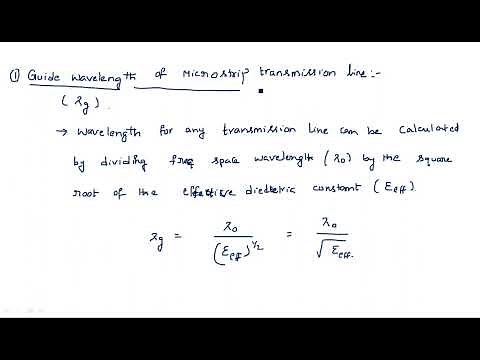 ① Guide wavelength of Microstrip transmission line:-
(λg).
→ Wavelength for any transmission line can be calculated
by dividing free space wavelength (λ0) by the square
root of the effective dielectric constant (Eeff).
λg = λ0 / (Eeff)^1/2 = λ0 / √Eeff.